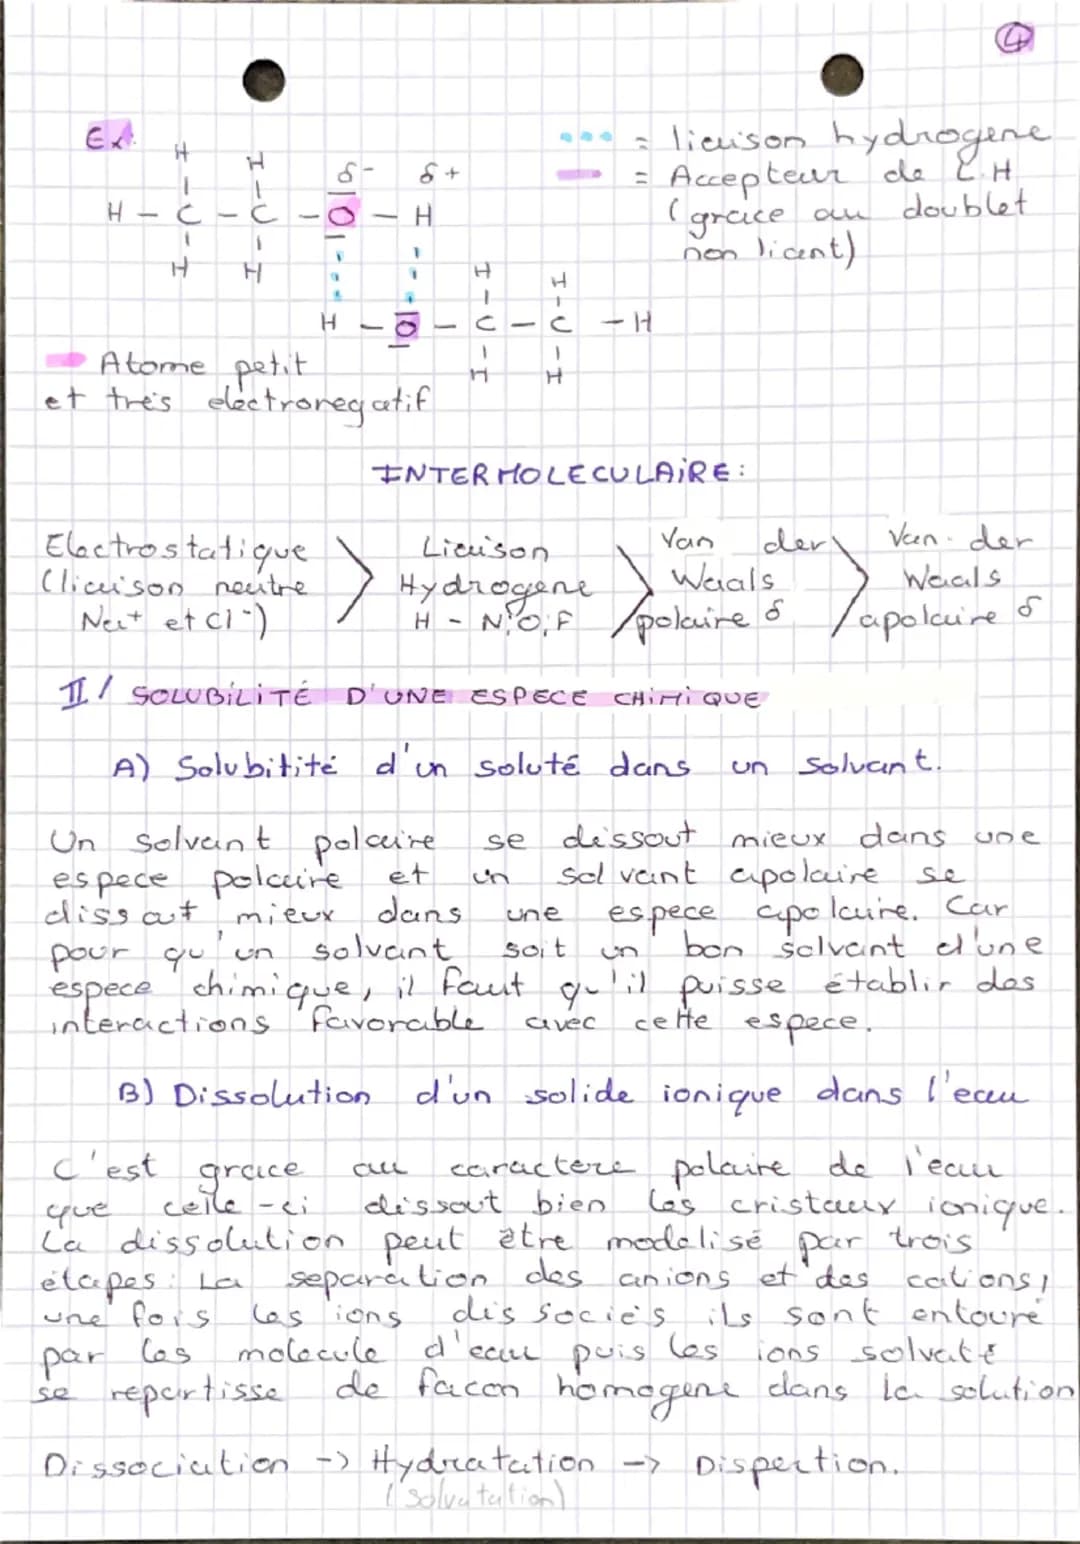 4
Ex:
H H δ- δ+
H - C - C - O - H
H H
H H
H - O - C - C - H
H H
= liaison hydrogene
= Accepteur de L.H
(grace au doublet
non liant)
Atome petit
et très electronegatif
INTERMOLECULAIRE:
Electrostatique > Liaison > Van der > Van der
(liaison neutre Hydrogene Waals Waals
Na+ et Cl-) H - N;O;F polaire δ apolaire δ
II/ SOLUBILITÉ D'UNE ESPECE CHIMIQUE
A) Solubitité d'un soluté dans un solvant.
Un solvant polaire se dissout mieux dans une
espece polaire et un solvant apolaire se
dissout mieux dans une espece apolaire. Car
pour qu'un solvant soit un bon solvant d'une
espece chimique, il faut qu'il puisse établir des
interactions favorable avec cette espece.
B) Dissolution d'un solide ionique dans l'eau
C'est grace au caractere polaire de l'eau
que celle-ci dissout bien les cristaux ionique.
La dissolution peut être modelisé par trois
étapes: La separation des anions et des cations,
une fois les ions dissociés ils sont entouré
par les molecule d'eau puis les ions solvaté
se repartisse de facon homogene dans la solution
Dissociation -> Hydratation -> Dispertion.
(solvatation)